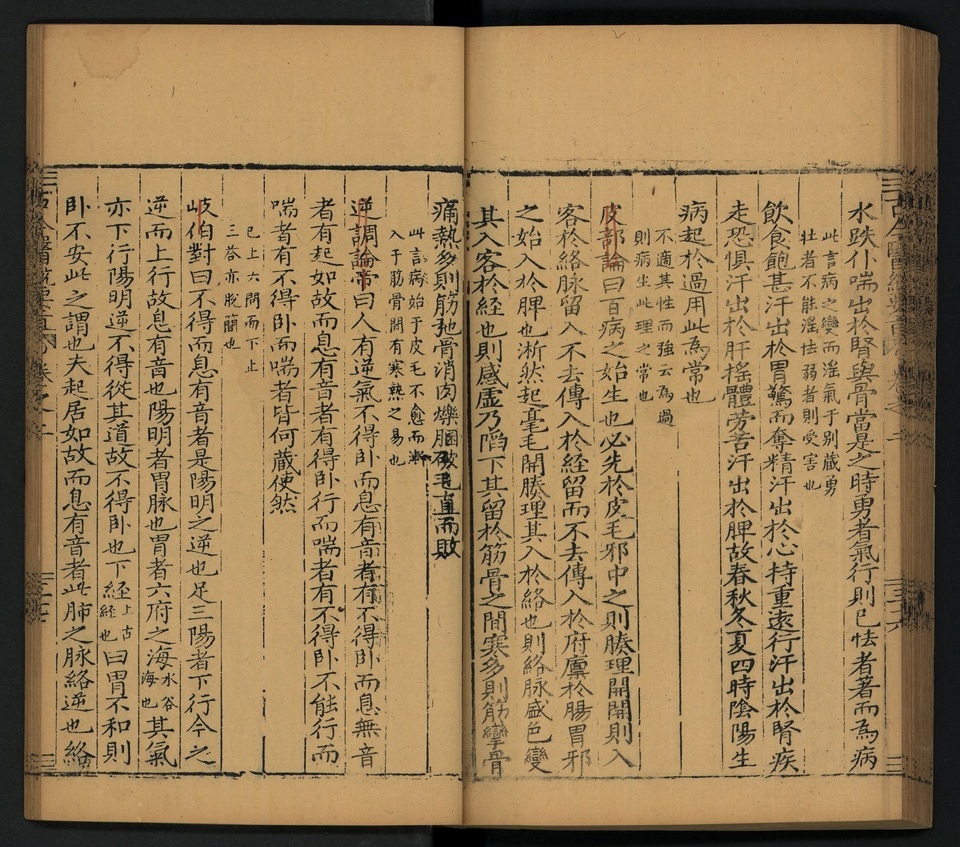 水跌仆喘出於腎與骨當是之時勇者氣行則已怯者著而為病
此言病之變而淫氣于別蔵勇
壮者不能淫怯弱者則受害也
飲食飽甚汗出於胃驚而奪精汗出於心持重遠行汗出於腎疾
走恐懼汗出於肝揺體劳苦汗出於脾故春秋冬夏四時陰陽生
病起於過用此為常也
不適其性而強云為過
則病生此理之常也
皮部論曰百病之始生也必先於皮毛邪中之則腠理開開則入
客於絡脉留入不去傳入於経留而不去傳入於府廪於腸胃邪
之始入於脾也淅然起毫毛開腠理其入於絡也則絡脉盛色變
其入客於経也則感虚乃陷下其留於筋骨之間寒多則筋攣骨
痛熱多則筋弛骨消肉爍䐃破毛直而敗
此言病始于皮毛不愈而漸
入于筋骨間有寒熱之易也
逆調論帝曰人有逆氣不得卧而息有音者有不得卧而息無音
者有起如故而息有音者有得卧行而喘者有不得卧不能行而
喘者有不得卧而喘者皆何蔵使然
已上六問而下止
三荅亦脫簡也
岐伯對曰不得而息有音者是陽明之逆也足三陽者下行今之
逆而上行故息有音也陽明者胃脉也胃者六府之海水谷海也其氣
亦下行陽明逆不得從其道故不得卧也下経上古経也曰胃不和則
卧不安此之謂也夫起居如故而息有音者此肺之脉絡逆也絡